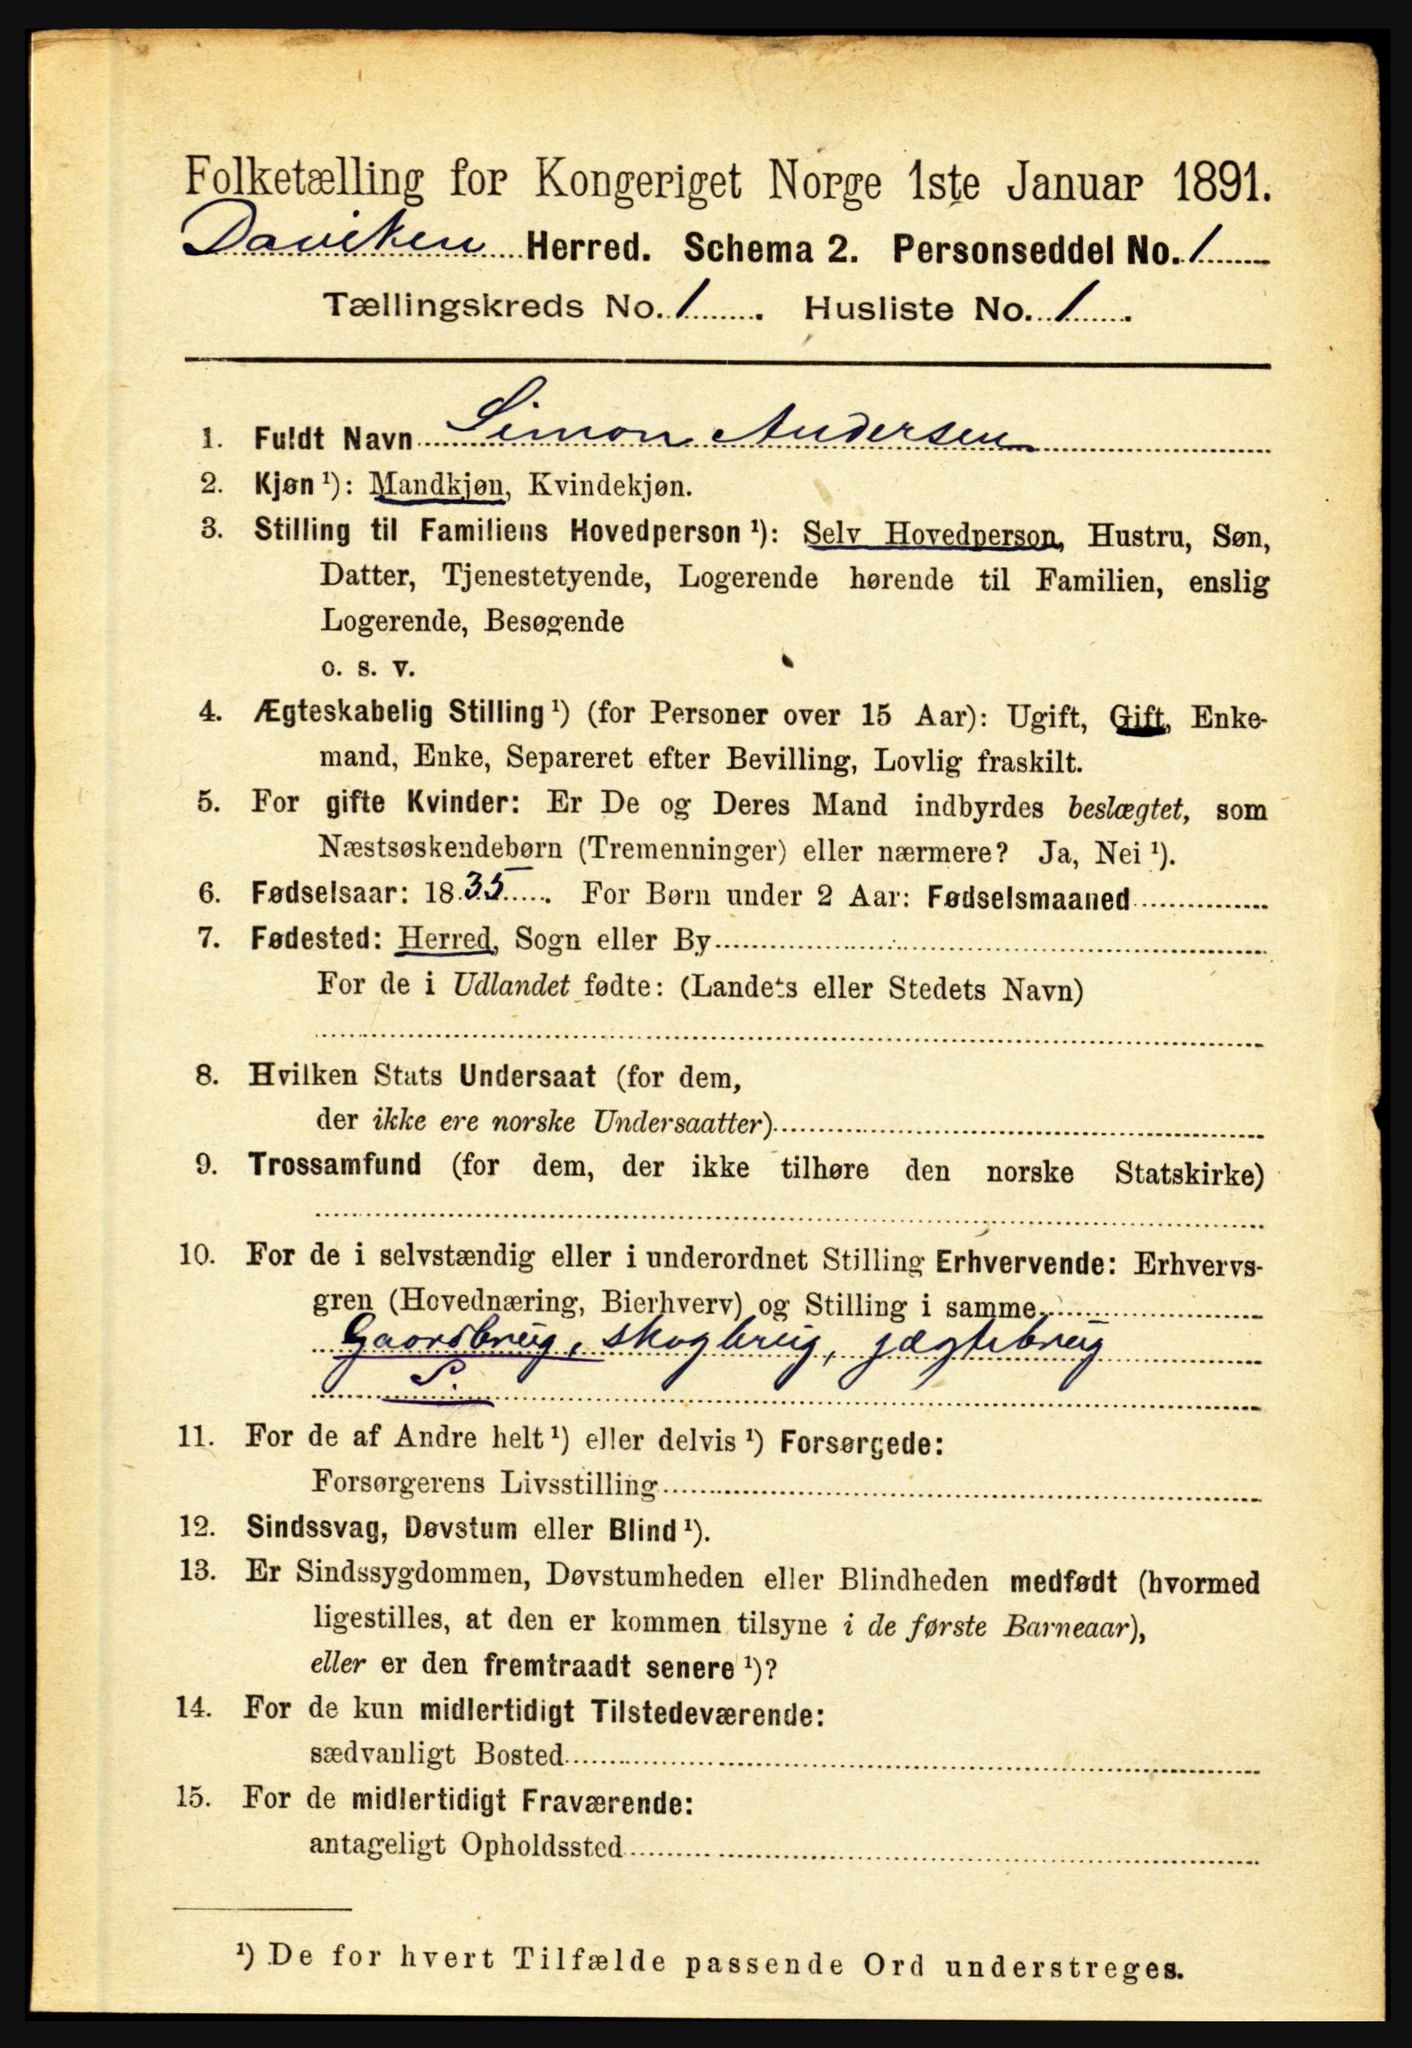 Folketælling for Kongeriget Norge 1ste Januar 1891.
Daviken Herred. Schema 2. Personseddel No. 1
Tællingskreds No. 1. Husliste No. 1.
1. Fuldt Navn Simon Andersen
2. Kjøn ¹): Mandkjøn, Kvindekjøn.
3. Stilling til Familiens Hovedperson ¹): Selv Hovedperson, Hustru, Søn,
Datter, Tjenestetyende, Logerende hørende til Familien, enslig
Logerende, Besøgende
o. s. v.
4. Ægteskabelig Stilling ¹) (for Personer over 15 Aar): Ugift, Gift, Enke-
mand, Enke, Separeret efter Bevilling, Lovlig fraskilt.
5. For gifte Kvinder: Er De og Deres Mand indbyrdes beslægtet, som
Næstsøskendebørn (Tremenninger) eller nærmere? Ja, Nei ¹).
6. Fødselsaar: 1835. For Børn under 2 Aar: Fødselsmaaned
7. Fødested: Herred, Sogn eller By
For de i Udlandet fødte: (Landets eller Stedets Navn)
8. Hvilken Stats Undersaat (for dem,
der ikke ere norske Undersaatter)
9. Trossamfund (for dem, der ikke tilhøre den norske Statskirke)
10. For de i selvstændig eller i underordnet Stilling Erhvervende: Erhvervs-
gren (Hovednæring, Bierhverv) og Stilling i samme
Gaardbrug, skogbrug, jægtebrug
S.
11. For de af Andre helt ¹) eller delvis ¹) Forsørgede:
Forsørgerens Livsstilling
12. Sindssvag, Døvstum eller Blind ¹).
13. Er Sindssygdommen, Døvstumheden eller Blindheden medfødt (hvormed
ligestilles, at den er kommen tilsyne i de første Barneaar),
eller er den fremtraadt senere ¹)?
14. For de kun midlertidigt Tilstedeværende:
sædvanligt Bosted
15. For de midlertidigt Fraværende:
antageligt Opholdssted
¹) De for hvert Tilfælde passende Ord understreges.